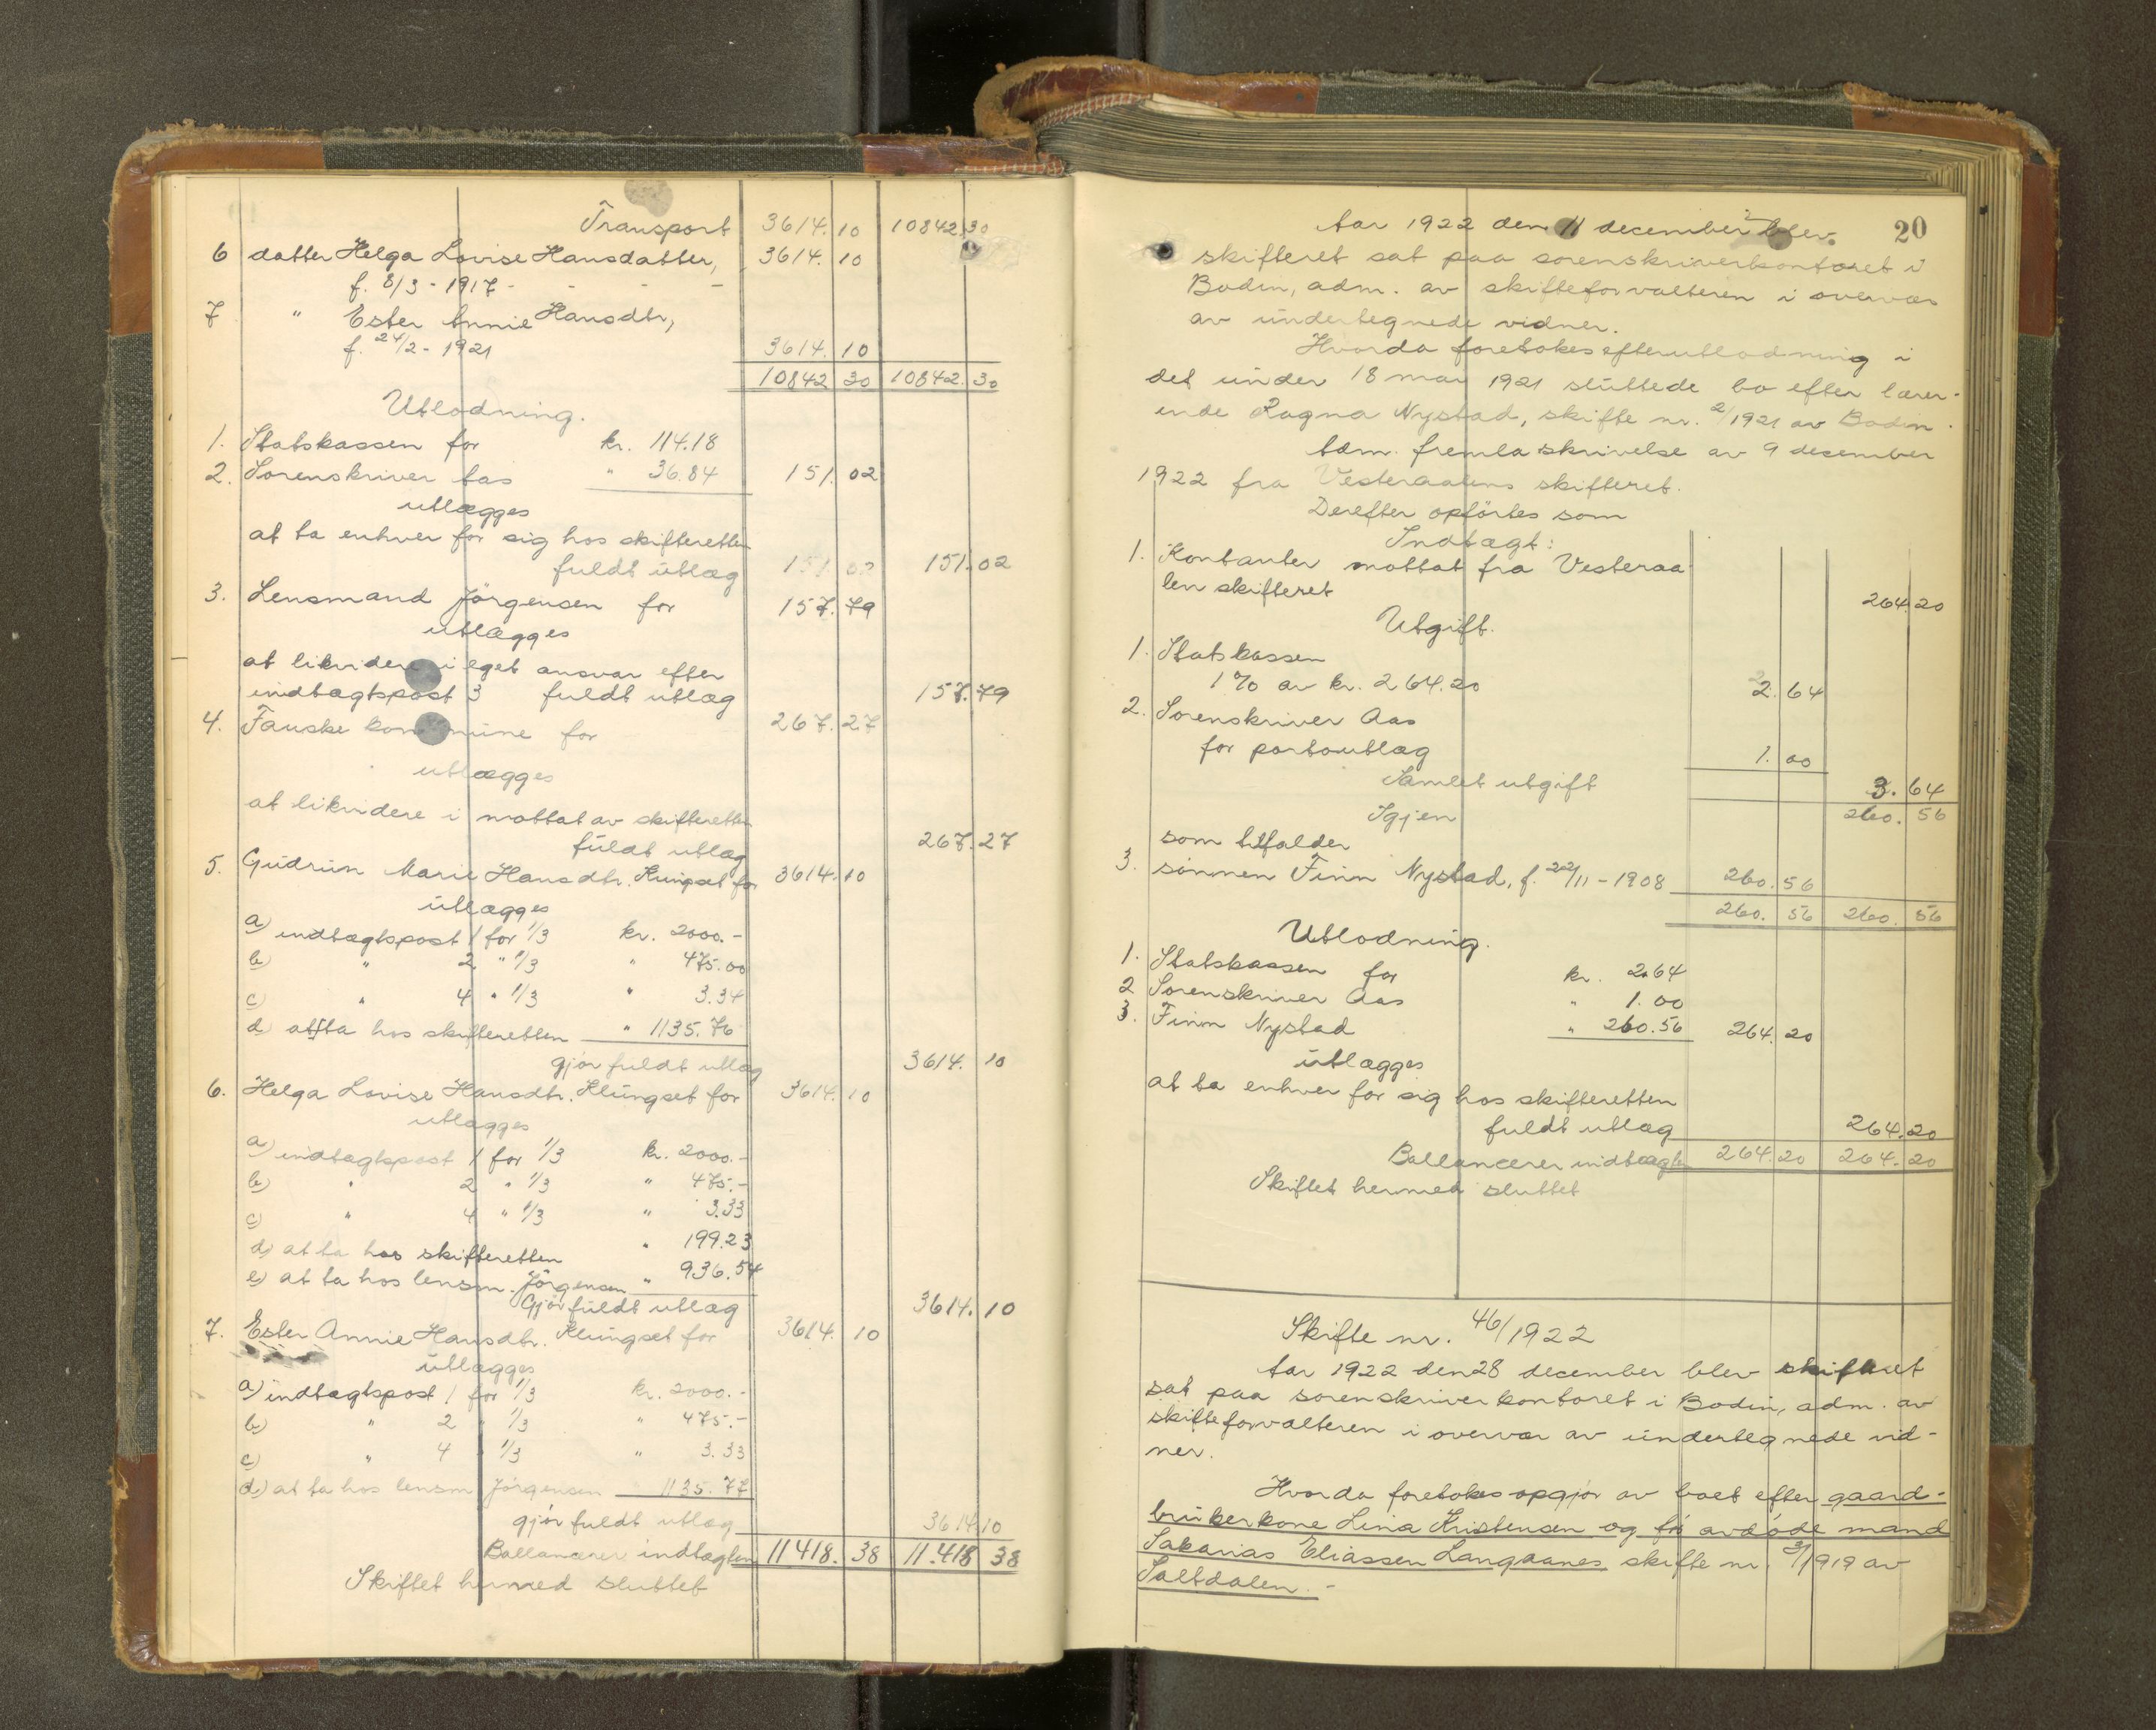 Transport 3614.10 10842.30
6 datter Helga Lovise Hansdatter, 3614.10
f. 8/3 - 1917 - - - -
7 " Ester Annie Hansdtr,
f. 24/2 - 1921 3614.10
10842 30 10842.30
Utlodning.
1. Statskassen for kr. 114.18
2. Sorenskriver Aas " 36.84 151.02
utlægges
at ta enhver for sig hos skifteretten
fuldt utlæg 151.02 151.02
3. Lensmand Jörgensen for 157.79
utlægges
at likvidere i eget ansvar efter
indtægtspost 3 fuldt utlæg 157.79
4. Fauske kommune for 267.27
utlægges
at likvidere i mottat av skifteretten
fuldt utlæg 267.27
5. Gudrun Marie Hansdtr. Klungset for 3614.10
utlægges
a) indtægtspost 1 for 1/3 kr. 2000.-
b) " 2 " 1/3 " 475.00
c) " 4 " 1/3 " 3.34
d) at ta hos skifteretten " 1135.76
gjör fuldt utlæg 3614.10
6. Helga Lovise Hansdtr. Klungset for 3614.10
utlægges
a) indtægtspost 1 for 1/3 kr. 2000.-
b) " 2 " 1/3 " 475.-
c) " 4 " 1/3 " 3.33
d) at ta hos skifteretten " 199.23
e) at ta hos lensm. Jörgensen " 936.54
Gjör fuldt utlæg 3614.10
7. Ester Annie Hansdtr. Klungset for 3614.10
utlægges
a) indtægtspost 1 for 1/3 kr. 2000.-
b) " 2 " 1/3 " 475.-
c) " 4 " 1/3 " 3.33
d) at ta hos lensm Jörgensen 1135.77
gjör fuldt utlæg 3614.10
Ballancerer indtægten 11418.38 11.418 38
Skiftet hermed sluttet
20
Aar 1922 den 11 december blev
skifteret sat paa sorenskriverkontoret i
Bodin, adm. av skifteforvalteren i overvær
av undertegnede vidner.
Hvorda foretokes efterutlodning i
det under 18 mar 1921 sluttede bo efter lærer-
inde Ragna Nystad, skifte nr. 2/1921 av Bodin.
Adm. fremla skrivelse av 9 december
1922 fra Vesteraalens skifteret.
Derefter opförtes som
Indtægt:
1. Kontanter mottat fra Vesteraa
len skifteret 264.20
Utgift.
1. Statskassen
1% av kr. 264.20 2.64
2. Sorenskriver Aas
for portoutlæg 1.00
Samlet utgift 3.64
Igjen 260.56
som tilfalder
3. sönnen Finn Nystad, f. 22/11 - 1908 260.56
260.56 260.56
Utlodning.
1. Statskassen for kr. 2.64
2 Sorenskriver Aas " 1.00
3. Finn Nystad " 260.56 264.20
utlægges
at ta enhver for sig hos skifteretten
fuldt utlæg 264.20
Ballancerer indtægten 264.20 264.20
Skiftet hermed sluttet
Skifte nr. 46/1922
Aar 1922 den 28 december blev skifteret
sat paa sorenskriverkontoret i Bodin, adm. av
skifteforvalteren i overvær av undertegnede vid-
ner.
Hvorda foretokes opgjör av boet efter gaard-
brukerkone Lina Kristensen og för avdöde mand
Sakarias Eliassen Langaanes skifte nr. 3/1919 av
Saltdalen. -